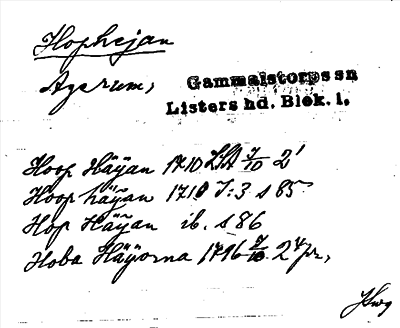 Hophejan
Agerum, Gammalstorps sn
Listers hd. Blek. l.
Hoop Häÿan 1710 LSA 7/10 2'
Hoop häÿan 1710 J:3 s 85
Hop Häÿan ib. s 86
Hoba Häÿorna 1796 2 4 pr,